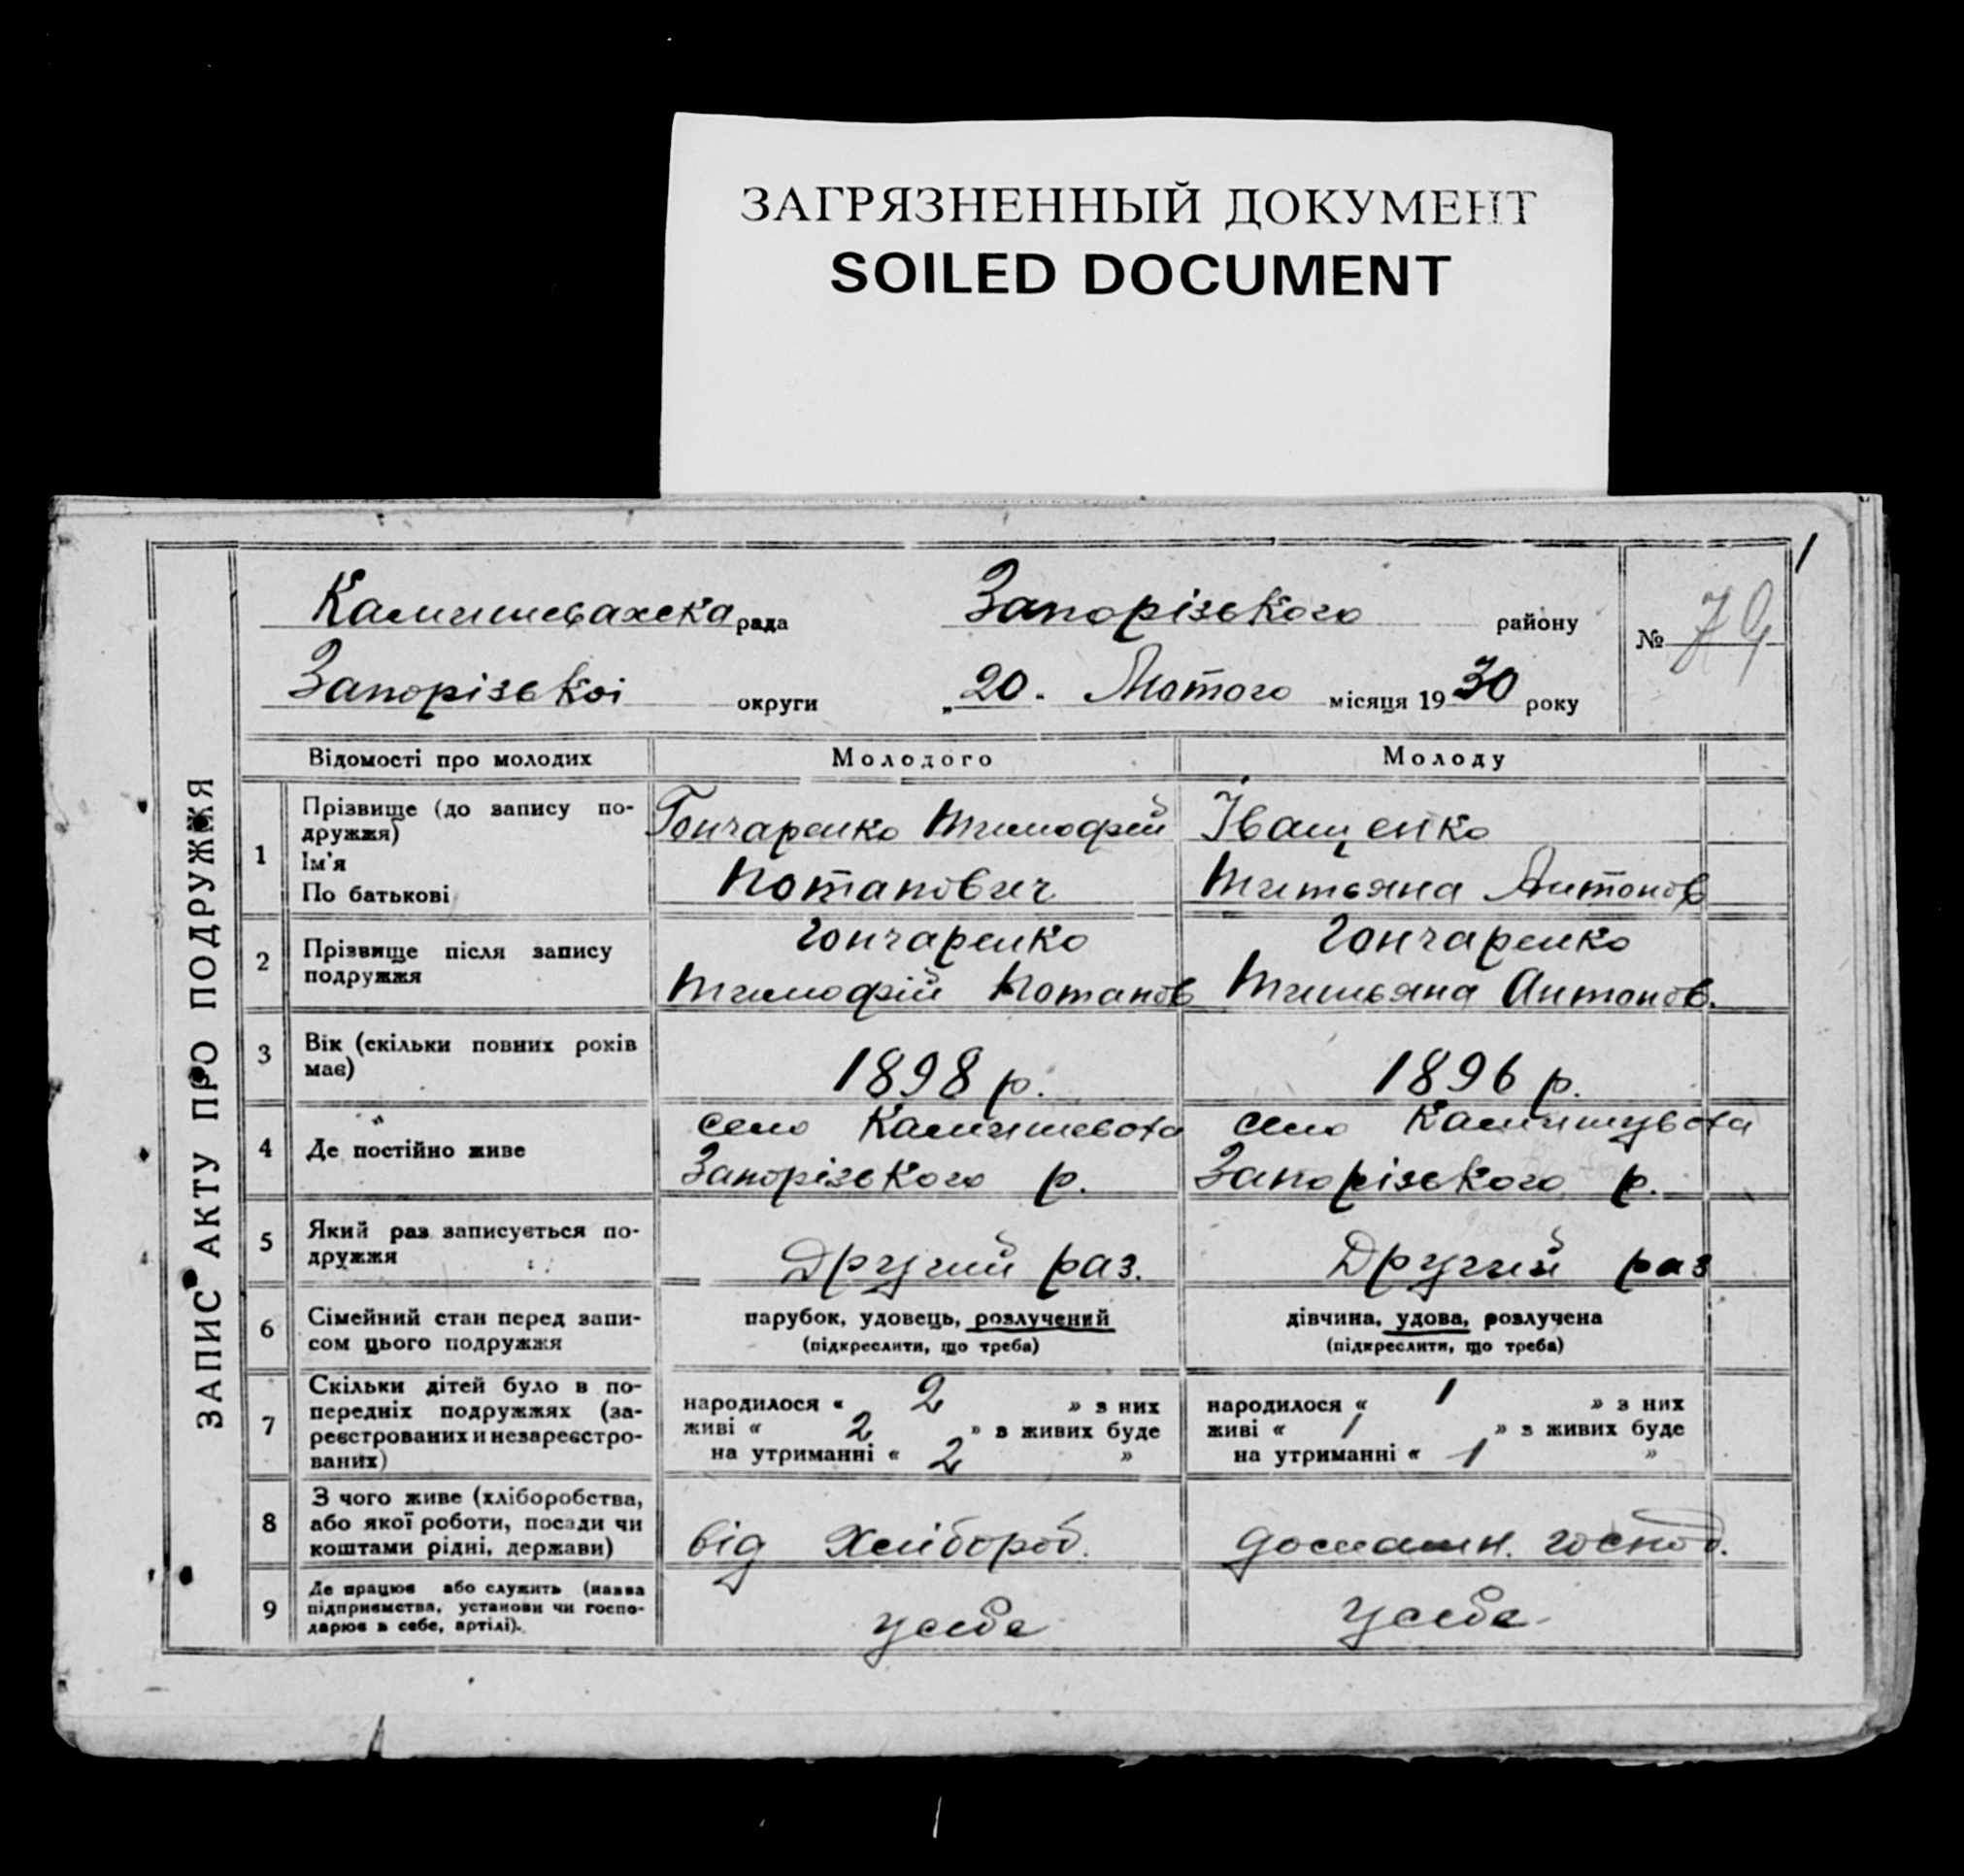 ЗАГРЯЗНЕННЫЙ ДОКУМЕНТ
SOILED DOCUMENT
ЗАПИС АКТУ ПРО ПОДРУЖЖЯ
Камишевахска рада Запорізького району
№ 79
1
Запорізькоі округи „20. Лютого місяця 1930 року
Відомості про молодих Молодого Молоду
1 Прізвище (до запису по-
дружжя)
Ім'я
По батькові
Гончаренко Тимофій
Потапович
Іващенко
Титьяна Антонов
2 Прізвище після запису
подружжя
Гончаренко
Тимофій Потапов
Гончаренко
Титьяна Антонов.
3 Вік (скільки повних років
має)
1898 р.
1896 р.
4 Де постійно живе
село Камишевоха
Запорізького р.
село Камишувоха
Запорізького р.
5 Який раз записується по-
дружжя
Другий раз.
Другий раз
6 Сімейний стан перед запи-
сом цього подружжя
парубок, удовець, розлучений
(підкреслити, що треба)
дівчина, удова, розлучена
(підкреслити, що треба)
7 Скільки дітей було в по-
передніх подружжях (за-
реєстрованих и незареєстро-
ваних)
народилося « 2 » з них
живі « 2 » з живих буде
на утриманні « 2 »
народилося « 1 » з них
живі « 1 » з живих буде
на утриманні « 1 »
8 З чого живе (хліборобства,
або якої роботи, посади чи
коштами рідні, держави)
від Хлібороб.
домашн. господ.
9 Де працює або служить (назва
підприємства, установи чи госпо-
дарює в себе, артілі).
усебе
усебе